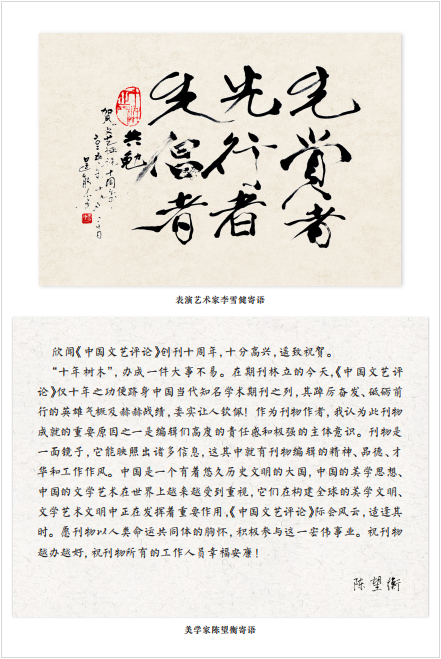 先赏者
先行者
先信者
共勉
贺文艺评论十周年
表演艺术家李雪健寄语
欣闻《中国文艺评论》创刊十周年,十分高兴,遥致祝贺。
“十年树木”,办成一件大事不易。在期刊林立的今天,《中国文艺评
论》仅十年之功便跻身中国当代知名学术期刊之列,其踔厉奋发、砥砺前
行的英雄气概及赫赫战绩,委实让人钦佩!作为刊物作者,我认为此刊物
成就的重要原因之一是编辑们高度的责任感和极强的主体意识。刊物是
一面镜子,它能映照出诸多信息,这其中就有刊物编辑的精神、品德、才
华和工作作风。中国是一个有着悠久历史文明的大国,中国的美学思想、
中国的文学艺术在世界上越来越受到重视,它们在构建全球的美学文明、
文学艺术文明中正在发挥着重要作用,《中国文艺评论》际会风云,适逢其
时。愿刊物以人类命运共同体的胸怀,积极参与这一宏伟事业。祝刊物
越办越好,祝刊物所有的工作人员幸福安康!
陈望衡
美学家陈望衡寄语